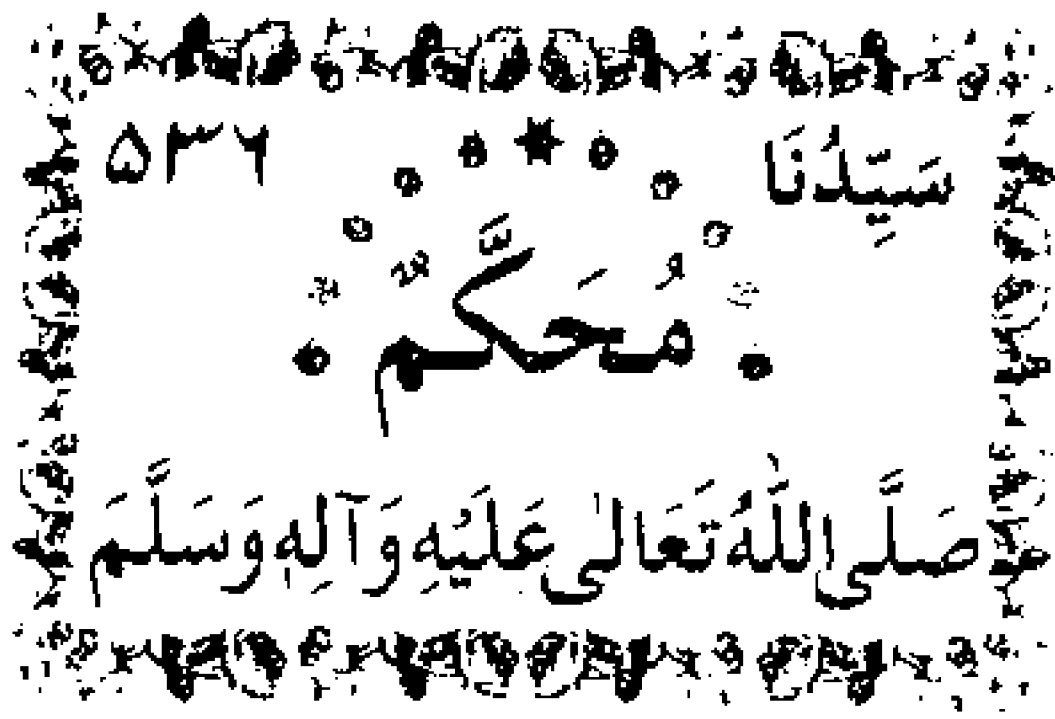 سَيِّدُنَا ۵۳۶
مُحَكَّمٌ
صَلَّى اللّٰهُ تَعَالٰى عَلَيْهِ وَآلِهٖ وَسَلَّمَ